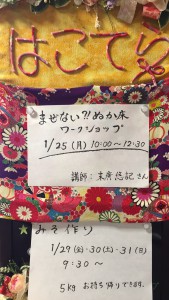 はこてら
まぜない⁇ぬか床
ワークショップ
1/25(月) 10:00〜12:30
講師:末廣悠記さん
みそ作り
1/29(金)・30(土)・31(日)
9:30〜
5kg お持ち帰りできます。